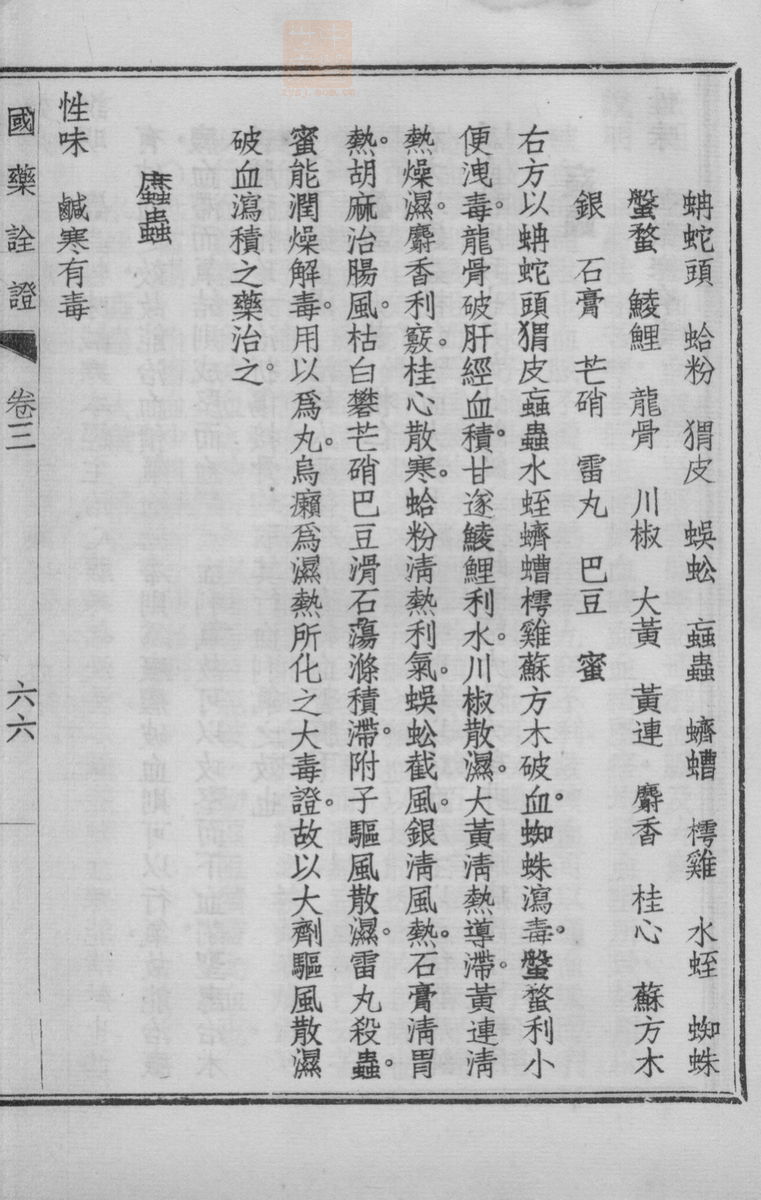 蚺蛇頭　蛤粉　猬皮　蜈蚣　蝱蟲　蠐螬　樗雞　水蛭　蜘蛛
螌蝥　鯪鯉　龍骨　川椒　大黃　黃連　麝香　桂心　蘇方木
銀　石膏　芒硝　雷丸　巴豆　蜜
右方以蚺蛇頭猬皮蝱蟲水蛭蠐螬樗雞蘇方木破血。蜘蛛瀉毒。螌蝥利小
便洩毒。龍骨破肝經血積。甘遂鯪鯉利水。川椒散濕。大黃淸熱導滯。黃連淸
熱燥濕。麝香利竅。桂心散寒。蛤粉淸熱利氣。蜈蚣截風。銀淸風熱。石膏淸胃
熱。胡麻治腸風。枯白礬芒硝巴豆滑石蕩滌積滯。附子驅風散濕。雷丸殺蟲。
蜜能潤燥解毒。用以爲丸。烏癩爲濕熱所化之大毒證。故以大劑驅風散濕
破血瀉積之藥治之。
䗪蟲
性味　鹹寒有毒
國藥詮證　卷三　六六